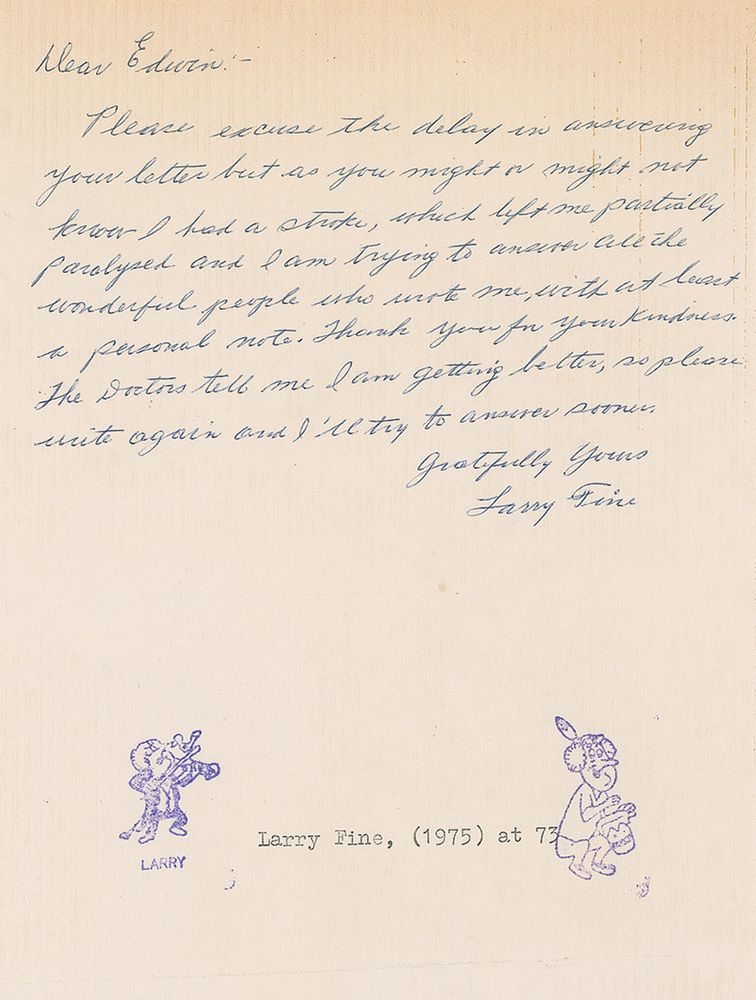 Dear Edwin:-
Please excuse the delay in answering
your letter but as you might or might not
know I had a stroke, which left me partially
paralysed and I am trying to answer all the
wonderful people who wrote me, with at least
a personal note. Thank you for your kindness.
The Doctors tell me I am getting better, so please
write again and I'll try to answer sooner.
Gratefully Yours
Larry Fine
Larry Fine, (1975) at 73
LARRY